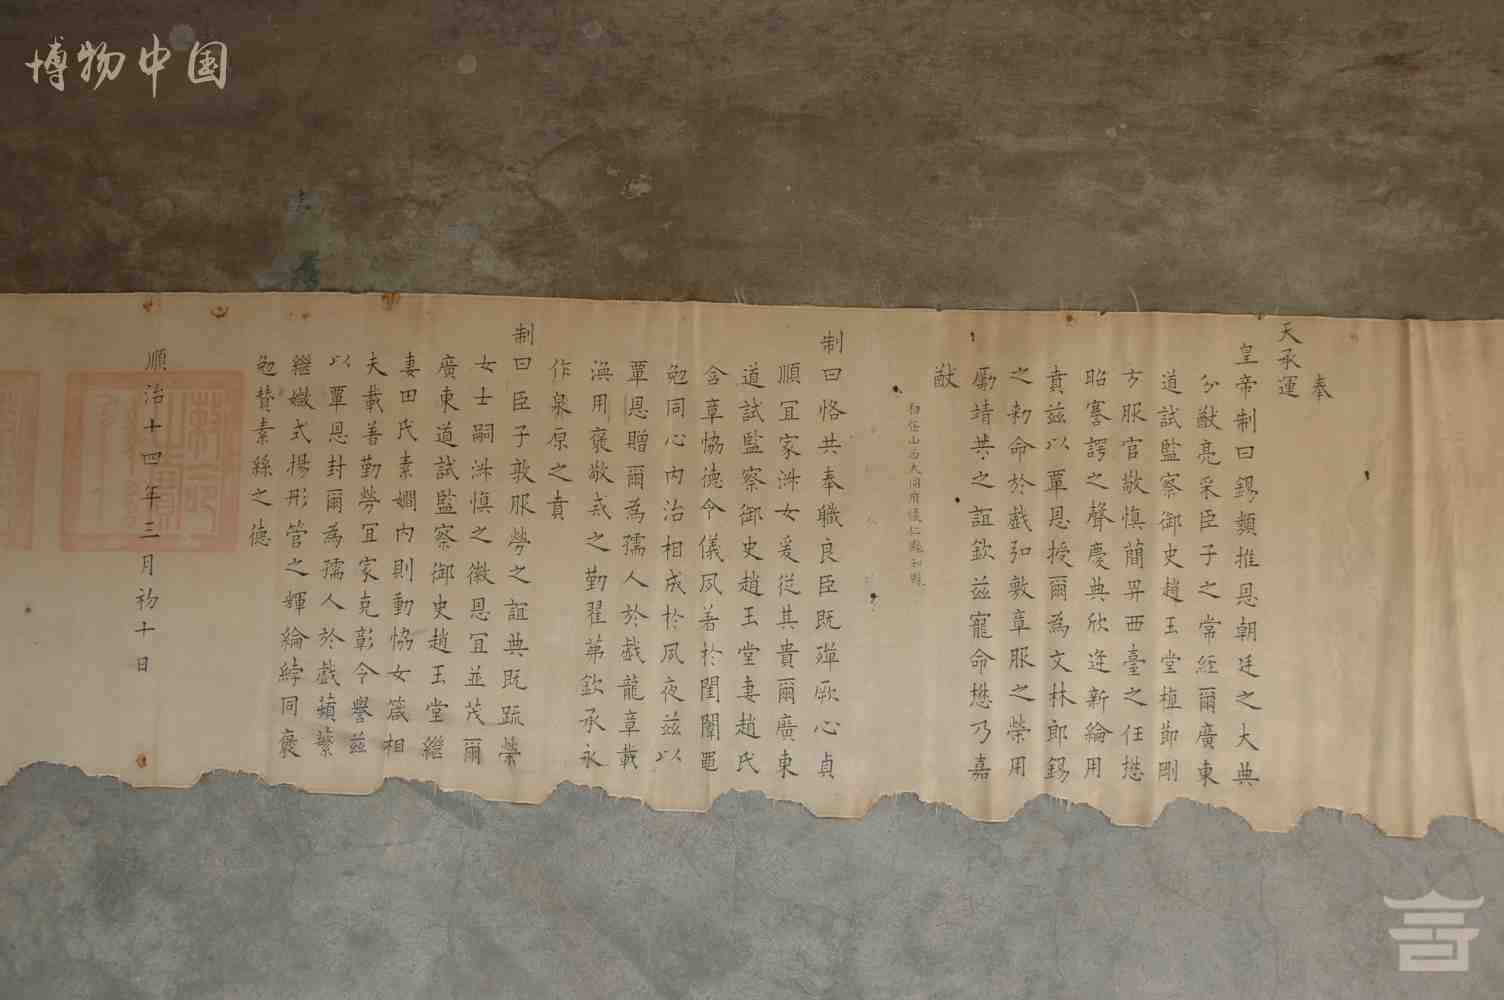 博物中国
奉
天承運
皇帝制曰錫類推恩朝廷之大典
分猷亮采臣子之常經爾廣東
道試監察御史趙玉堂植節剛
方服官敬慎簡畀西臺之任懋
昭謇諤之聲慶典欣逢新綸用
賁茲以覃恩授爾為文林郎錫
之勅命於戲弘敷章服之榮用
勵靖共之誼欽茲寵命懋乃嘉
猷
山西大同府懷仁縣知縣
制曰恪共奉職良臣既殫厥心貞
順宜家淑女爰從其貴爾廣東
道試監察御史趙玉堂妻趙氏
含章協德令儀夙著於閨闈黽
勉同心內治相成於夙夜茲以
覃恩贈爾為孺人於戲龍章載
渙用褒敬戒之勤翟茀欽承永
作泉原之賁
制曰臣子敦服勞之誼典既疏榮
女士嗣淑慎之徽恩宜並茂爾
廣東道試監察御史趙玉堂繼
妻田氏素嫺內則動協女箴相
夫載著勤勞宜家克彰令譽茲
以覃恩封爾為孺人於戲蘋蘩
繼媺式揚彤管之輝綸綍同褒
勉贊素絲之德
順治十四年三月初十日